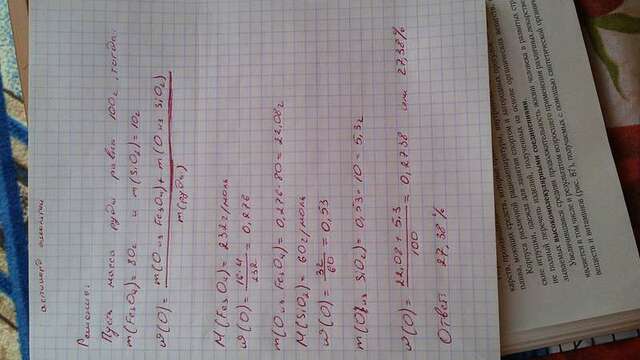 Решение:
Пусть масса руды равна 100г, тогда:
m(Fe₃O₄)= 80г и m(SiO₂)= 10г
ω(O)= m(O из Fe₃O₄)+ m(O из SiO₂)
m(руды)
M(Fe₃O₄)= 232г/моль
ω(O)= 16·4/232 = 0,276
m(O из Fe₃O₄)= 0,276·80= 22,08г
M(SiO₂)= 60г/моль
ω(O)= 32/60 = 0,53
m(O из SiO₂)= 0,53·10= 5,3г
ω(O)= 22,08+5,3/100 = 0,2738 или 27,38%
Ответ: 27,38%
карств, моющих средств, которые
плива,
ские игрушки, одежда для занятия спортом и загородных прогулок
не полный перечень изделий, полученных на основе органических веществ
зываемых высокомолекулярными соединениями.
Увеличившаяся средняя продолжительность жизни человека в развитых стр
является в том числе и результатом широкого применения различных лекарстве
веществ и витаминов (рис. 87), получаемых с помощью синтетической органи